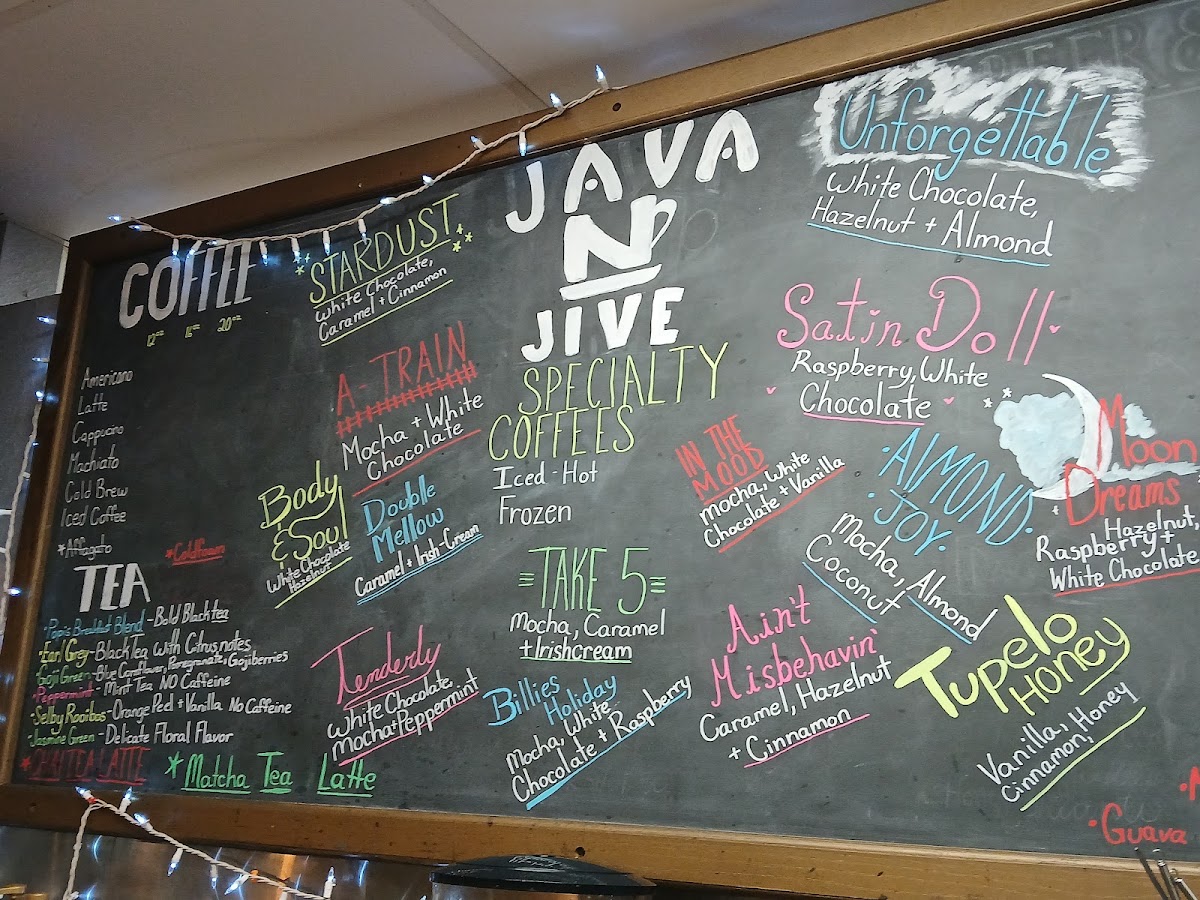 COFFEE
12oz 16oz 20oz
Americano
Latte
Cappucino
Machiato
Cold Brew
Iced Coffee
*Affagato
*Coldfoam
TEA
Pop's Breakfast Blend - Bold Black tea
Earl Grey - Black Tea with Citrus notes
Goji Green - Blue Cornflower, Pomegranate, Gojiberries
Peppermint - Mint Tea NO Caffeine
Selby Rooibos - Orange Peel + Vanilla No Caffeine
Jasmine Green - Delicate Floral Flavor
*CHAI TEA LATTE
*Matcha Tea Latte
STARDUST
White Chocolate,
Caramel + Cinnamon
A-TRAIN
Mocha + White
Chocolate
Body
& Soul
White Chocolate
Hazelnut
Double
Mellow
Caramel + Irish-Cream
Tenderly
White Chocolate,
Mocha + Peppermint
JAVA
N
JIVE
SPECIALTY
COFFEES
Iced - Hot
Frozen
TAKE 5
Mocha, Caramel
+ Irishcream
Billies
Holiday
Mocha, White
Chocolate + Raspberry
Unforgettable
White Chocolate,
Hazelnut + Almond
Satin Doll
Raspberry, White
Chocolate
IN THE
MOOD
Mocha, White
Chocolate + Vanilla
ALMOND
JOY.
Mocha, Almond
Coconut
Moon
Dreams
Hazelnut,
Raspberry +
White Chocolate
Ain't
Misbehavin'
Caramel, Hazelnut
+ Cinnamon
Tupelo
HONEY
Vanilla, Honey
Cinnamon,
Guava